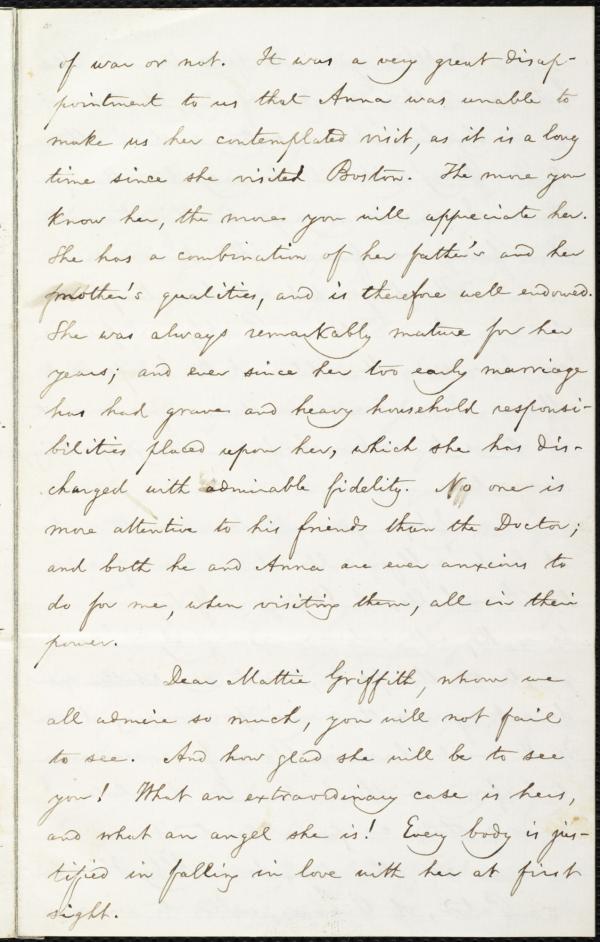 of war or not. It was a very great disap-
pointment to us that Anna was unable to
make us her contemplated visit, as it is a long
time since she visited Boston. The more you
know her, the more you will appreciate her.
She has a combination of her father's and her
mother's qualities, and is therefore well endowed.
She was always remarkably mature for her
years; and ever since her too early marriage
has had grave and heavy household responsi-
bilities placed upon her, which she has dis-
charged with admirable fidelity. No one is
more attentive to his friends than the Doctor;
and both he and Anna are ever anxious to
do for me, when visiting them, all in their
power.
Dear Mattie Griffith, whom we
all admire so much, you will not fail
to see. And how glad she will be to see
you! What an extraordinary case is hers,
and what an angel she is! Every body is jus-
tified in falling in love with her at first
sight.